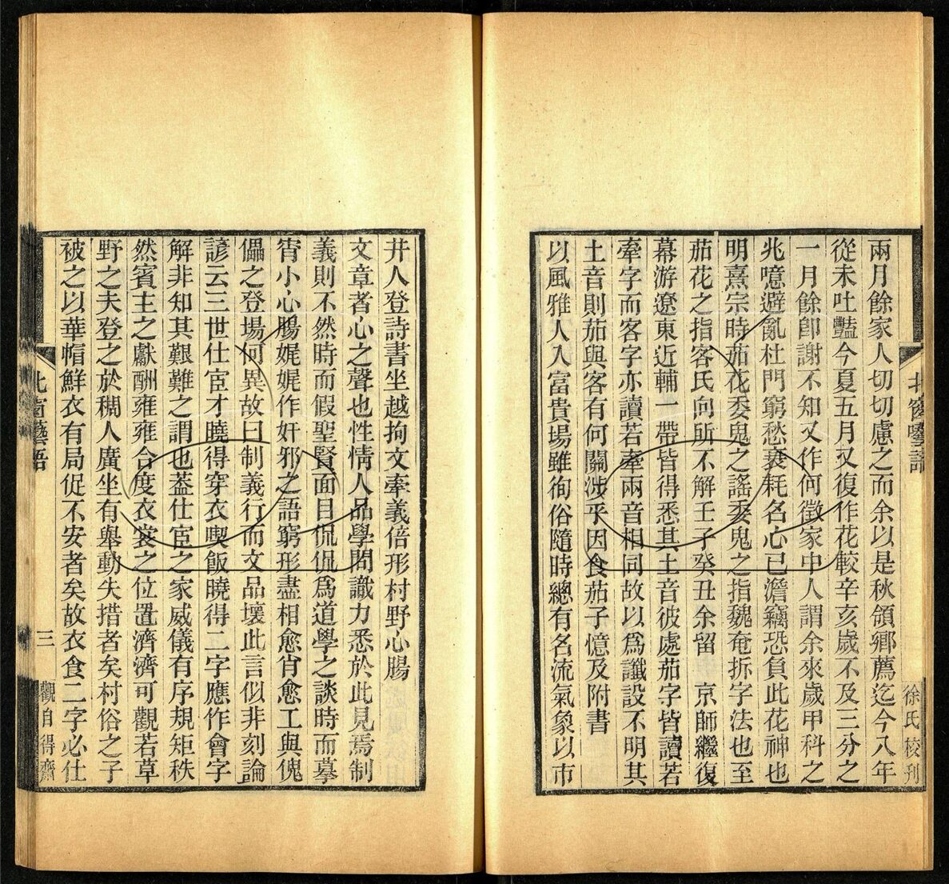 兩月餘家人切切慮之而余以是秋領鄉薦迄今八年
從未吐豔今夏五月又復作花較辛亥歲不及三分之
一月餘卽謝不知又作何徵家中人謂余來歲甲科之
兆噫避亂杜門窮愁衰耗名心已澹竊恐負此花神也
明熹宗時茄花委鬼之謠委鬼之指魏奄拆字法也至
茄花之指客氏向所不解壬子癸丑余留 京師繼復
幕游遼東近輔一帶皆得悉其土音彼處茄字皆讀若
牽字而客字亦讀若牽兩音相同故以爲讖設不明其
土音則茄與客有何關涉乎因食茄子憶及附書
以風雅人入富貴場雖徇俗隨時總有名流氣象以市
北窗囈語
徐氏校刊
井人登詩書坐越拘文牽義倍形村野心腸
文章者心之聲也性情人品學問識力悉於此見焉制
義則不然時而假聖賢面目侃侃爲道學之談時而摹
宵小心腸娓娓作奸邪之語窮形盡相愈肖愈工與傀
儡之登場何異故曰制義行而文品壞此言似非刻論
諺云三世仕宦才曉得穿衣喫飯曉得二字應作會字
解非知其艱難之謂也葢仕宦之家威儀有序規矩秩
然賓主之獻酬雍雍合度衣裳之位置濟濟可觀若草
野之夫登之於稠人廣坐有舉動失措者矣村俗之子
被之以華帽鮮衣有局促不安者矣故衣食二字必仕
北窗囈語
三
觀自得齋